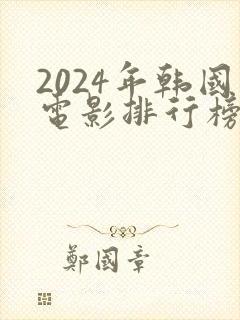 2024年韩国
电影排行榜
鄭國章